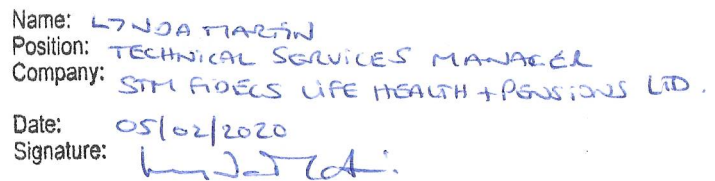 Name: LYNDA MARTIN
Position: TECHNICAL SERVICES MANAGER
Company: STM FIDECS LIFE HEALTH + PENSIONS LTD.
Date: 05/02/2020
Signature: